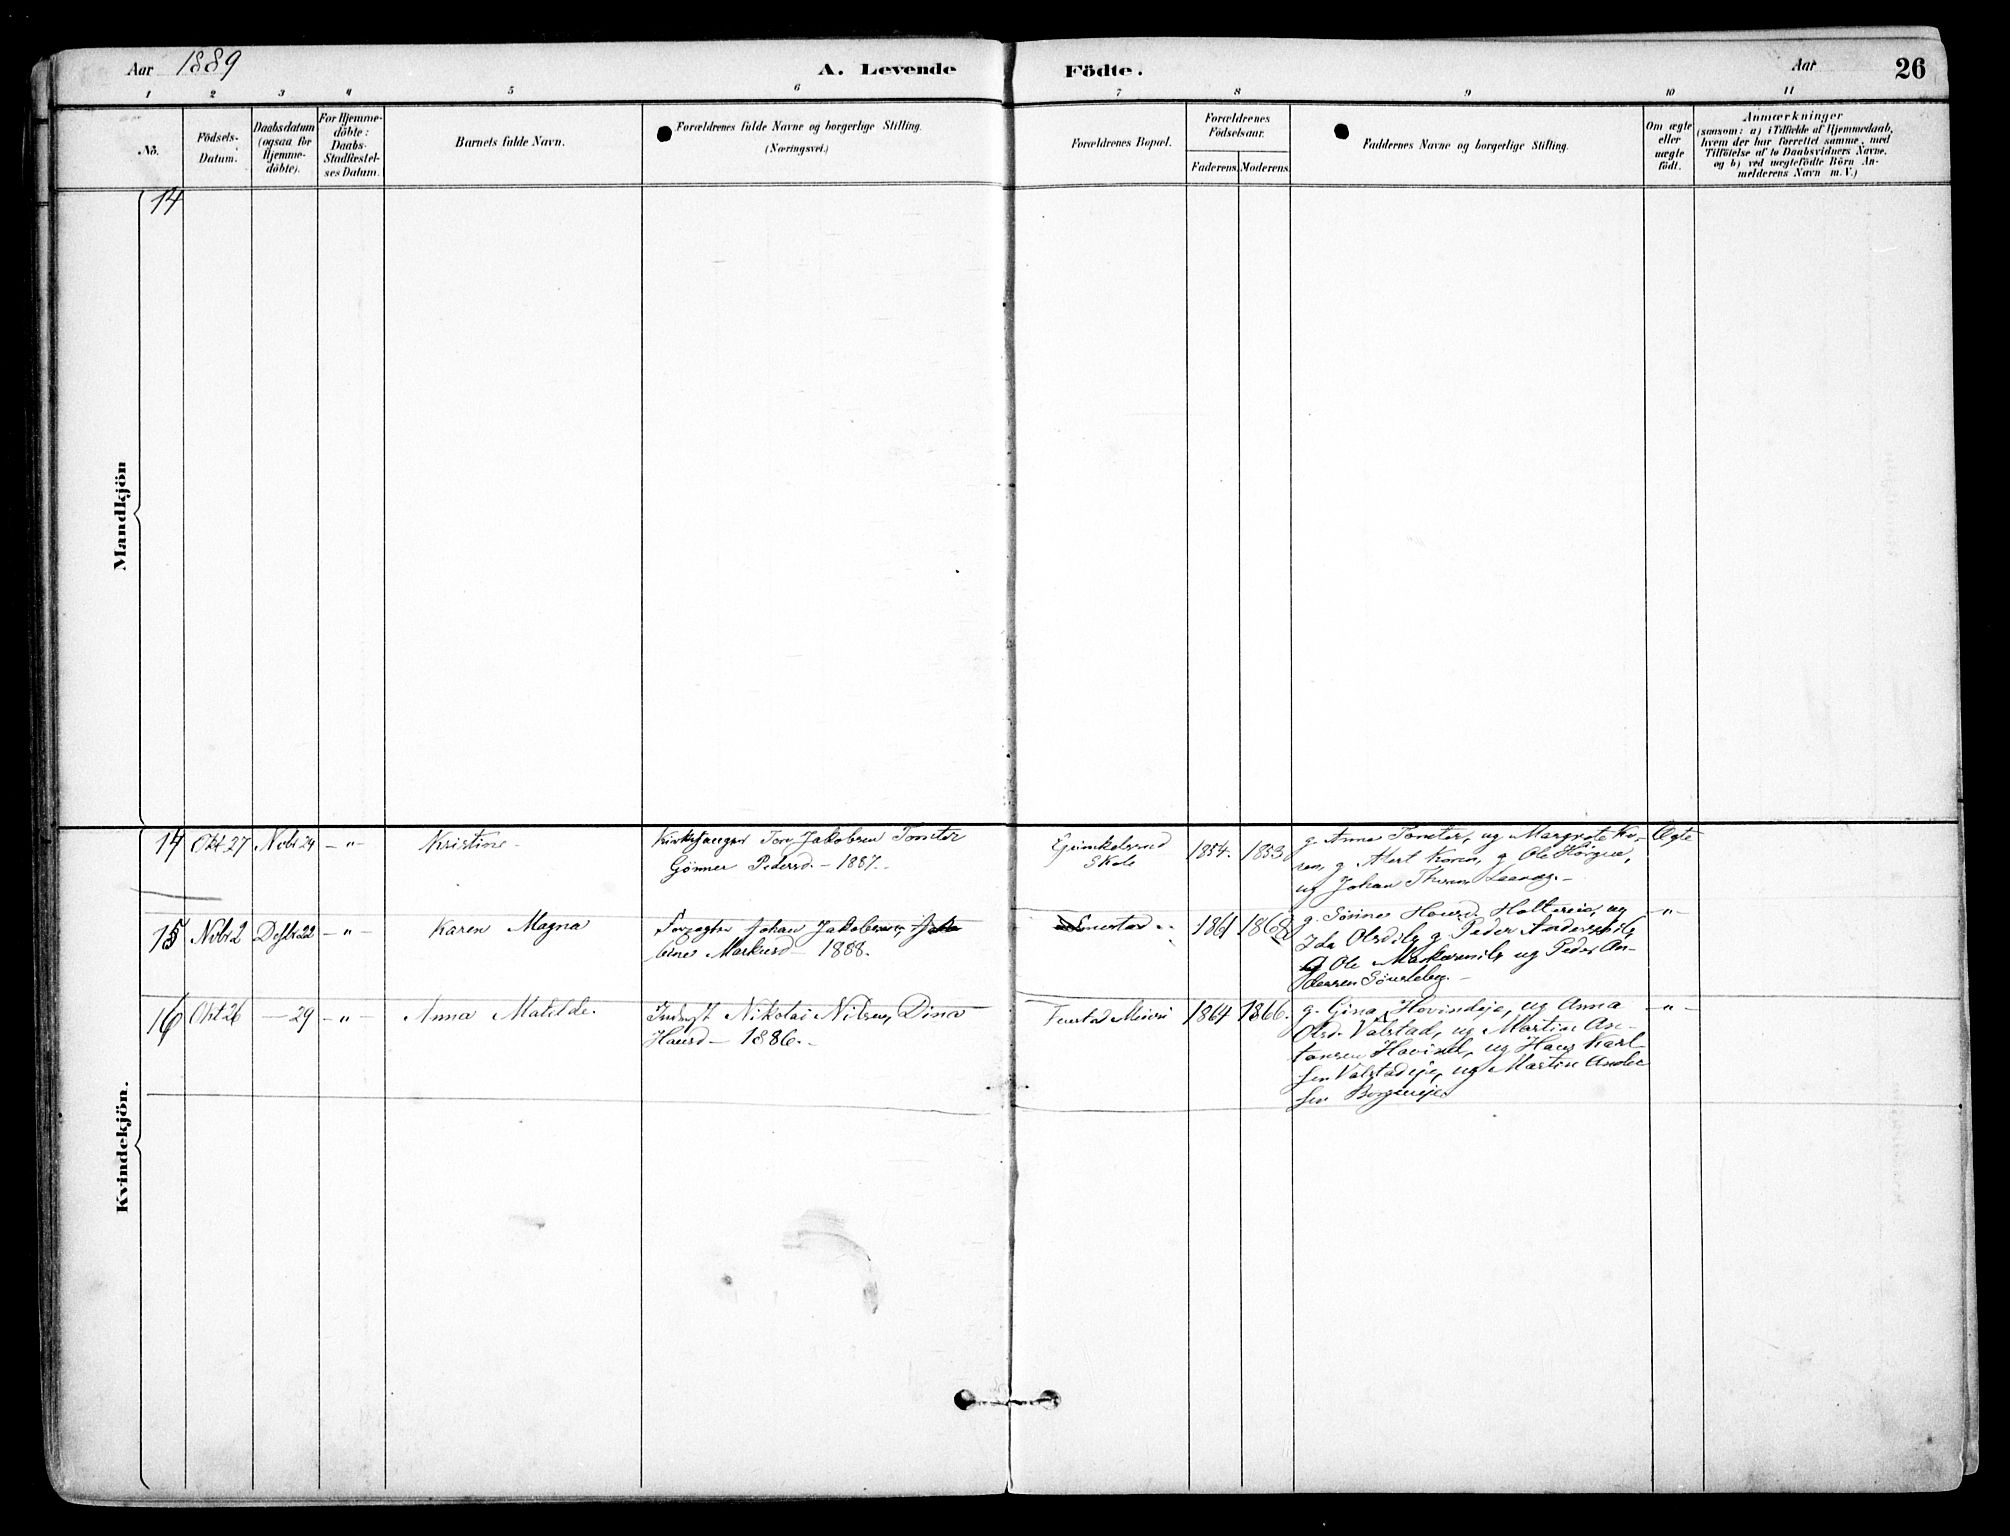 Aar 1889
A. Levende
Födte.
Aar
26
1
2
3
4
5
6
7
8
9
10
11
No.
Födsels-
Datum.
Daabsdatum
(ogsaa for
Hjemme-
döbte).
For Hjemme-
döbte:
Daabs-
Stadfæstel-
ses Datum.
Barnets fulde Navn.
Forældrenes fulde Navne og borgerlige Stilling.
(Næringsvei.)
Forældrenes Bopæl.
Forældrenes
Födselsaar.
Faderens.
Moderens.
Faddernes Navne og borgerlige Stilling.
Om ægte
eller
uægte
födt.
Anmærkninger
(saasom: a) i Tilfælde af Hjemmedaab,
hvem der har forrettet samme, med
Tilföielse af to Daabsvidners Navne,
og b) ved uægtefödte Börn An-
melderens Navn m. V.)
Mandkjön
14
Kvindekjön.
14
Okt 27
Nvbr 24
- " -
Kristine -
Kirkesanger Tor Jakobsen Tomter
Gönner Pedersd - 1887.
Skole
1854.
1853
g. Anna Tomter, ug Margrete Ko-
ren, g. Abert Koren, g Ole
ug Johan
Egte
15
Nvbr 2
Dsbr 22
- " -
Karen Magna
Johan Jakobsen,
bine Markusd - 1888.
1861
1868
g. Sönne Hansd Holtereie, ug
Ida Olsd g. Peder Anders
Ole ug Peder An-
dersen
- " -
16
Okt 26
- 29
- " -
Anna Matilde.
Indryst Nikolai Nilsen, Dina
Hansd - 1886.
1864
1866.
g. Gina Hovindeje, ug Anna
Olsd. Valstad, ug Martin An-
tonsen Hovind, ug Hans Karl-
sen Valstadeje, ug Martin Ander
sen
- " -